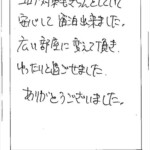 コロナ対策もきちんとしていて
安心して宿泊出来ました。
広い部屋に変えて頂き
ゆったりと過ごせました。
ありがとうございました。